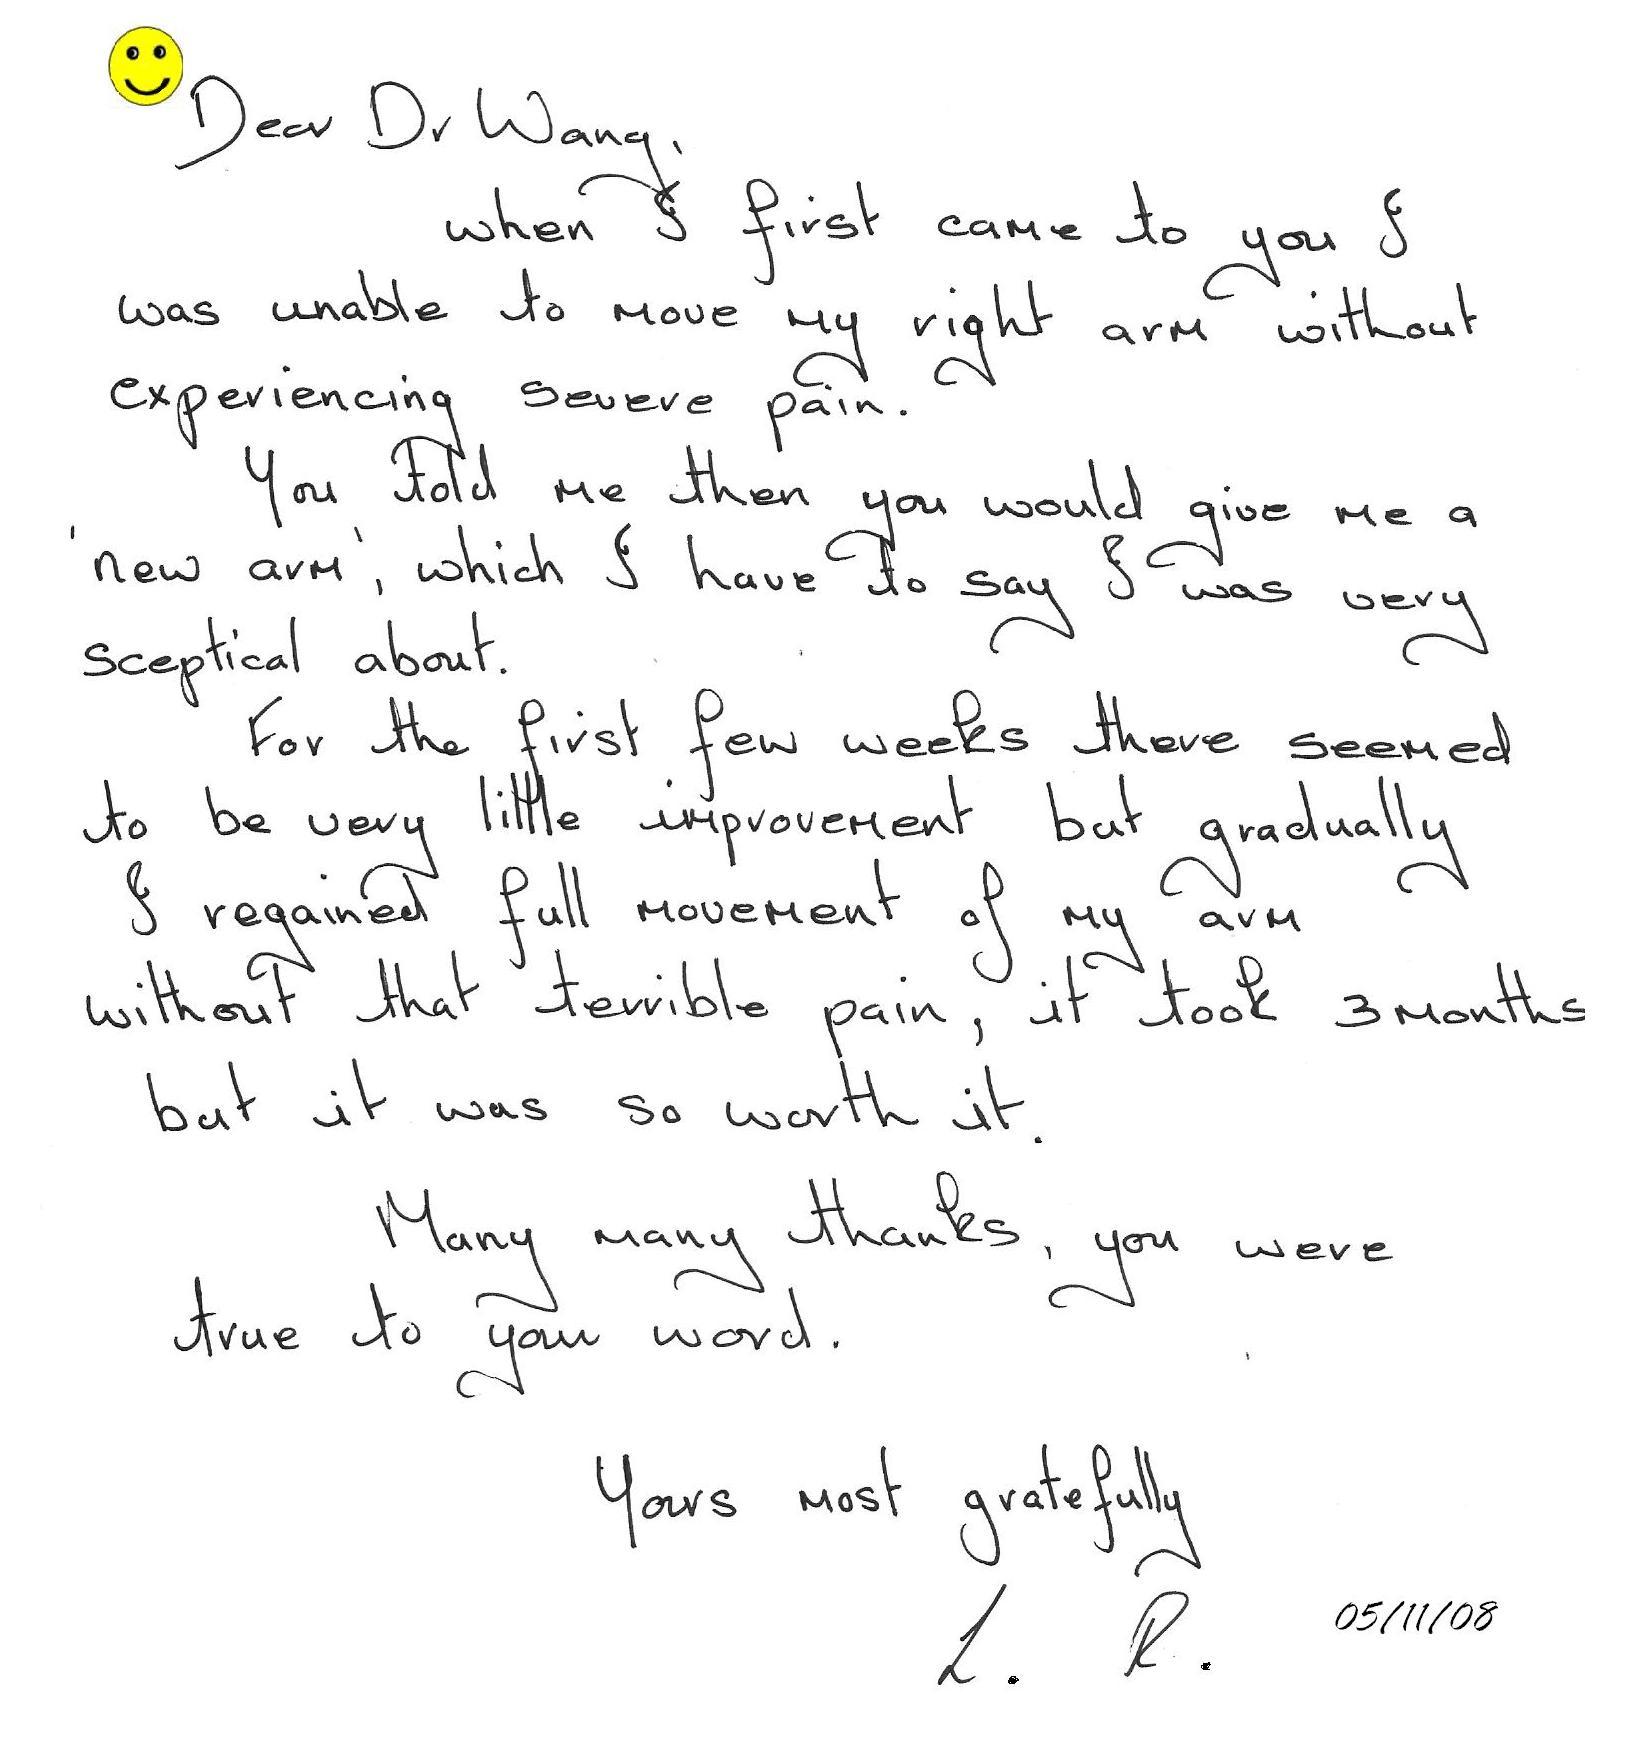 Dear Dr Wang,
when I first came to you I
was unable to move my right arm without
experiencing severe pain.
You told me then you would give me a
'new arm', which I have to say I was very
sceptical about.
For the first few weeks there seemed
to be very little improvement but gradually
I regained full movement of my arm
without that terrible pain, it took 3 months
but it was so worth it.
Many many thanks, you were
true to your word.
Yours most gratefully
L. R.
05/11/08